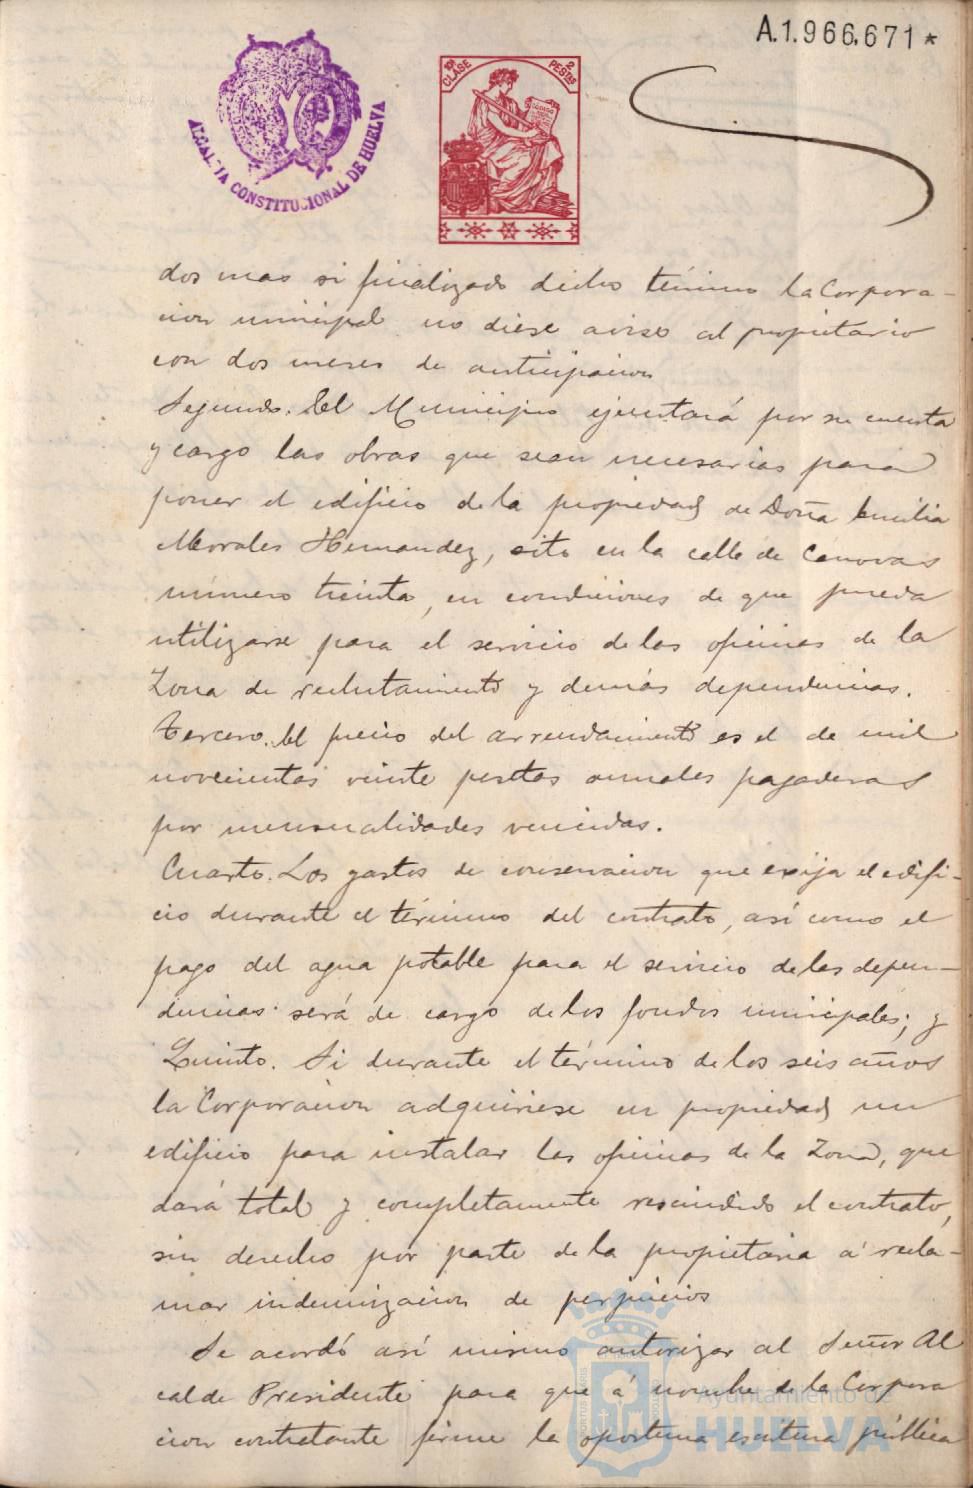 A.1.966,671*
ALCALDIA CONSTITUCIONAL DE HUELVA
10ª CLASE 2 PESETAS
dos mas si finalizado dicho término la Corpora-
cion municipal no diese aviso al propietario
con dos meses de anticipacion
Segundo. El Municipio ejecutará por su cuenta
y cargo las obras que sean necesarias para
poner el edificio de la propiedad de Doña Emilia
Morales Hernandez, sito en la calle de Cánovas
número treinta, en condiciones de que pueda
utilizarse para el servicio de las oficinas de la
Zona de reclutamiento y demás dependencias.
Tercero. El precio del arrendamiento es el de mil
novecientas veinte pesetas anuales pagaderas
por mensualidades vencidas.
Cuarto. Los gastos de conservacion que exija el edifi-
cio durante el término del contrato, así como el
pago del agua potable para el servicio de las depen-
dencias será de cargo de los fondos municipales; y
Quinto. Si durante el término de los seis años
la Corporacion adquiriese en propiedad un
edificio para instalar las oficinas de la Zona, que
dará total y completamente rescindido el contrato,
sin derecho por parte de la propietaria á recla-
mar indemnizacion de perjuicios
Se acordó así mismo autorizar al Señor Al
calde Presidente para que á nombre de la Corpora
cion contratante firme la oportuna escritura pública
Ayuntamiento de
HUELVA